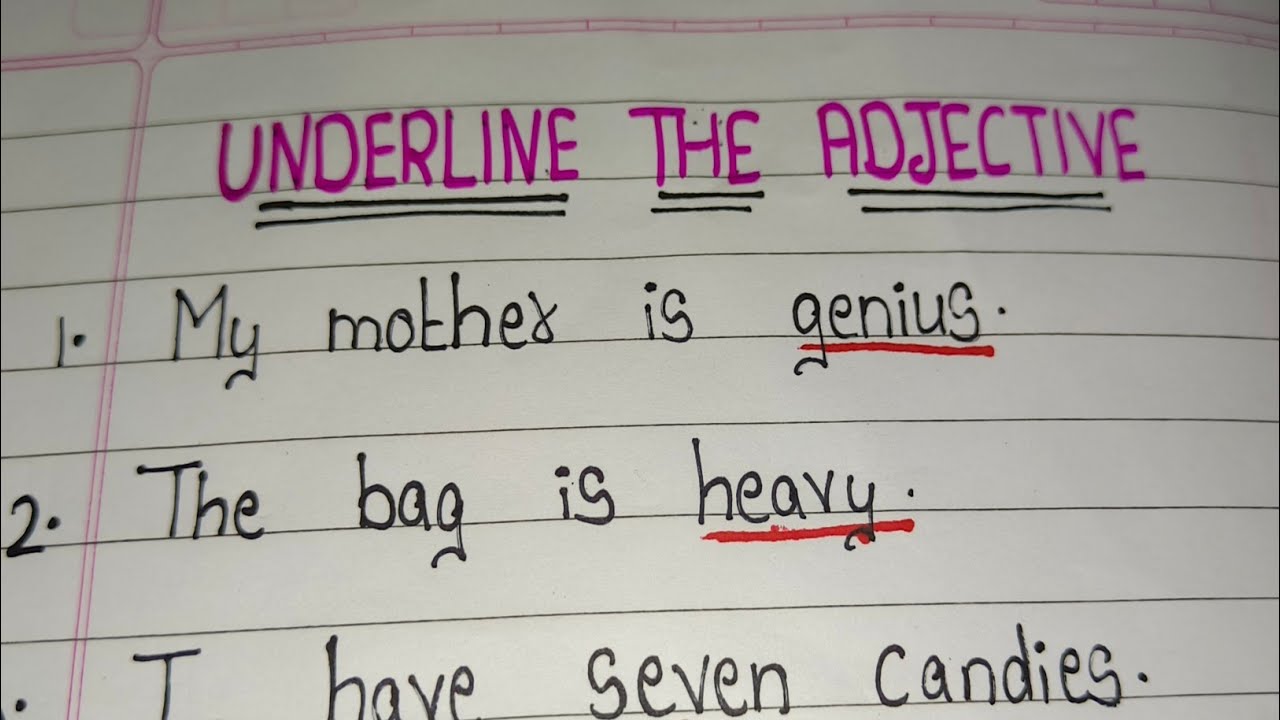 UNDERLINE THE ADJECTIVE
1. My mother is genius.
2. The bag is heavy.
. I have seven candies.